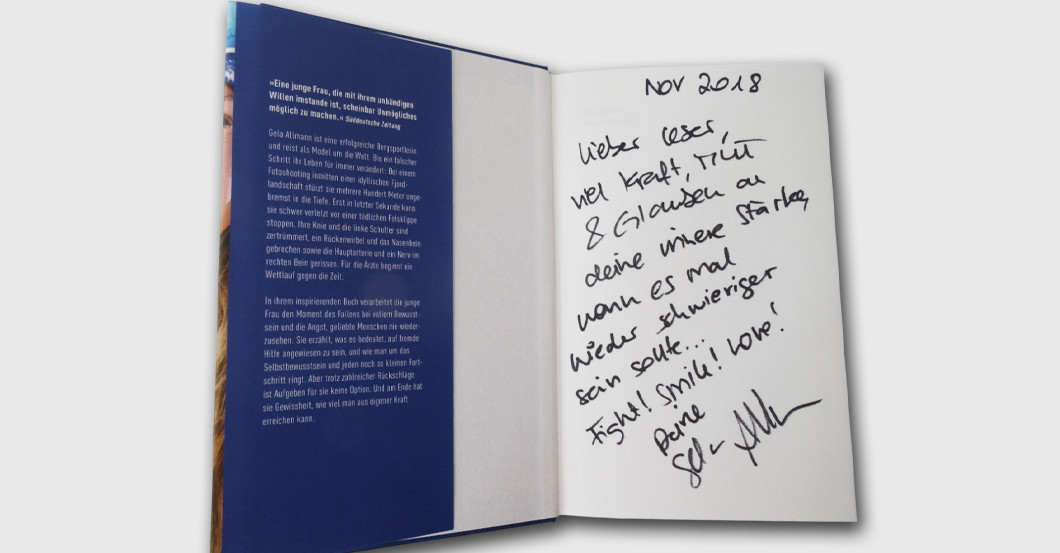 »Eine junge Frau, die mit ihrem unbändigen
Willen imstande ist, scheinbar Unmögliches
möglich zu machen.« Süddeutsche Zeitung
Gela Allmann ist eine erfolgreiche Bergsportlerin
und reist als Model um die Welt. Bis ein falscher
Schritt ihr Leben für immer verändert: Bei einem
Fotoshooting inmitten einer idyllischen Fjord-
landschaft stürzt sie mehrere Hundert Meter unge-
bremst in die Tiefe. Erst in letzter Sekunde kann
sie schwer verletzt vor einer tödlichen Felsklippe
stoppen. Ihre Knie und die linke Schulter sind
zertrümmert, ein Rückenwirbel und das Nasenbein
gebrochen sowie die Hauptarterie und ein Nerv im
rechten Bein gerissen. Für die Ärzte beginnt ein
Wettlauf gegen die Zeit.
In ihrem inspirierenden Buch verarbeitet die junge
Frau den Moment des Fallens bei vollem Bewusst-
sein und die Angst, geliebte Menschen nie wieder-
zusehen. Sie erzählt, was es bedeutet, auf fremde
Hilfe angewiesen zu sein, und wie man um das
Selbstbewusstsein und jeden noch so kleinen Fort-
schritt ringt. Aber trotz zahlreicher Rückschläge
ist Aufgeben für sie keine Option. Und am Ende hat
sie Gewissheit, wie viel man aus eigener Kraft
erreichen kann.
Nov 2018
Lieber Leser,
viel Kraft, Mut
& Glauben an
deine innere Stärke,
wann es mal
wieder schwieriger
sein sollte...
Fight! Smile! Love!
Deine
Gela